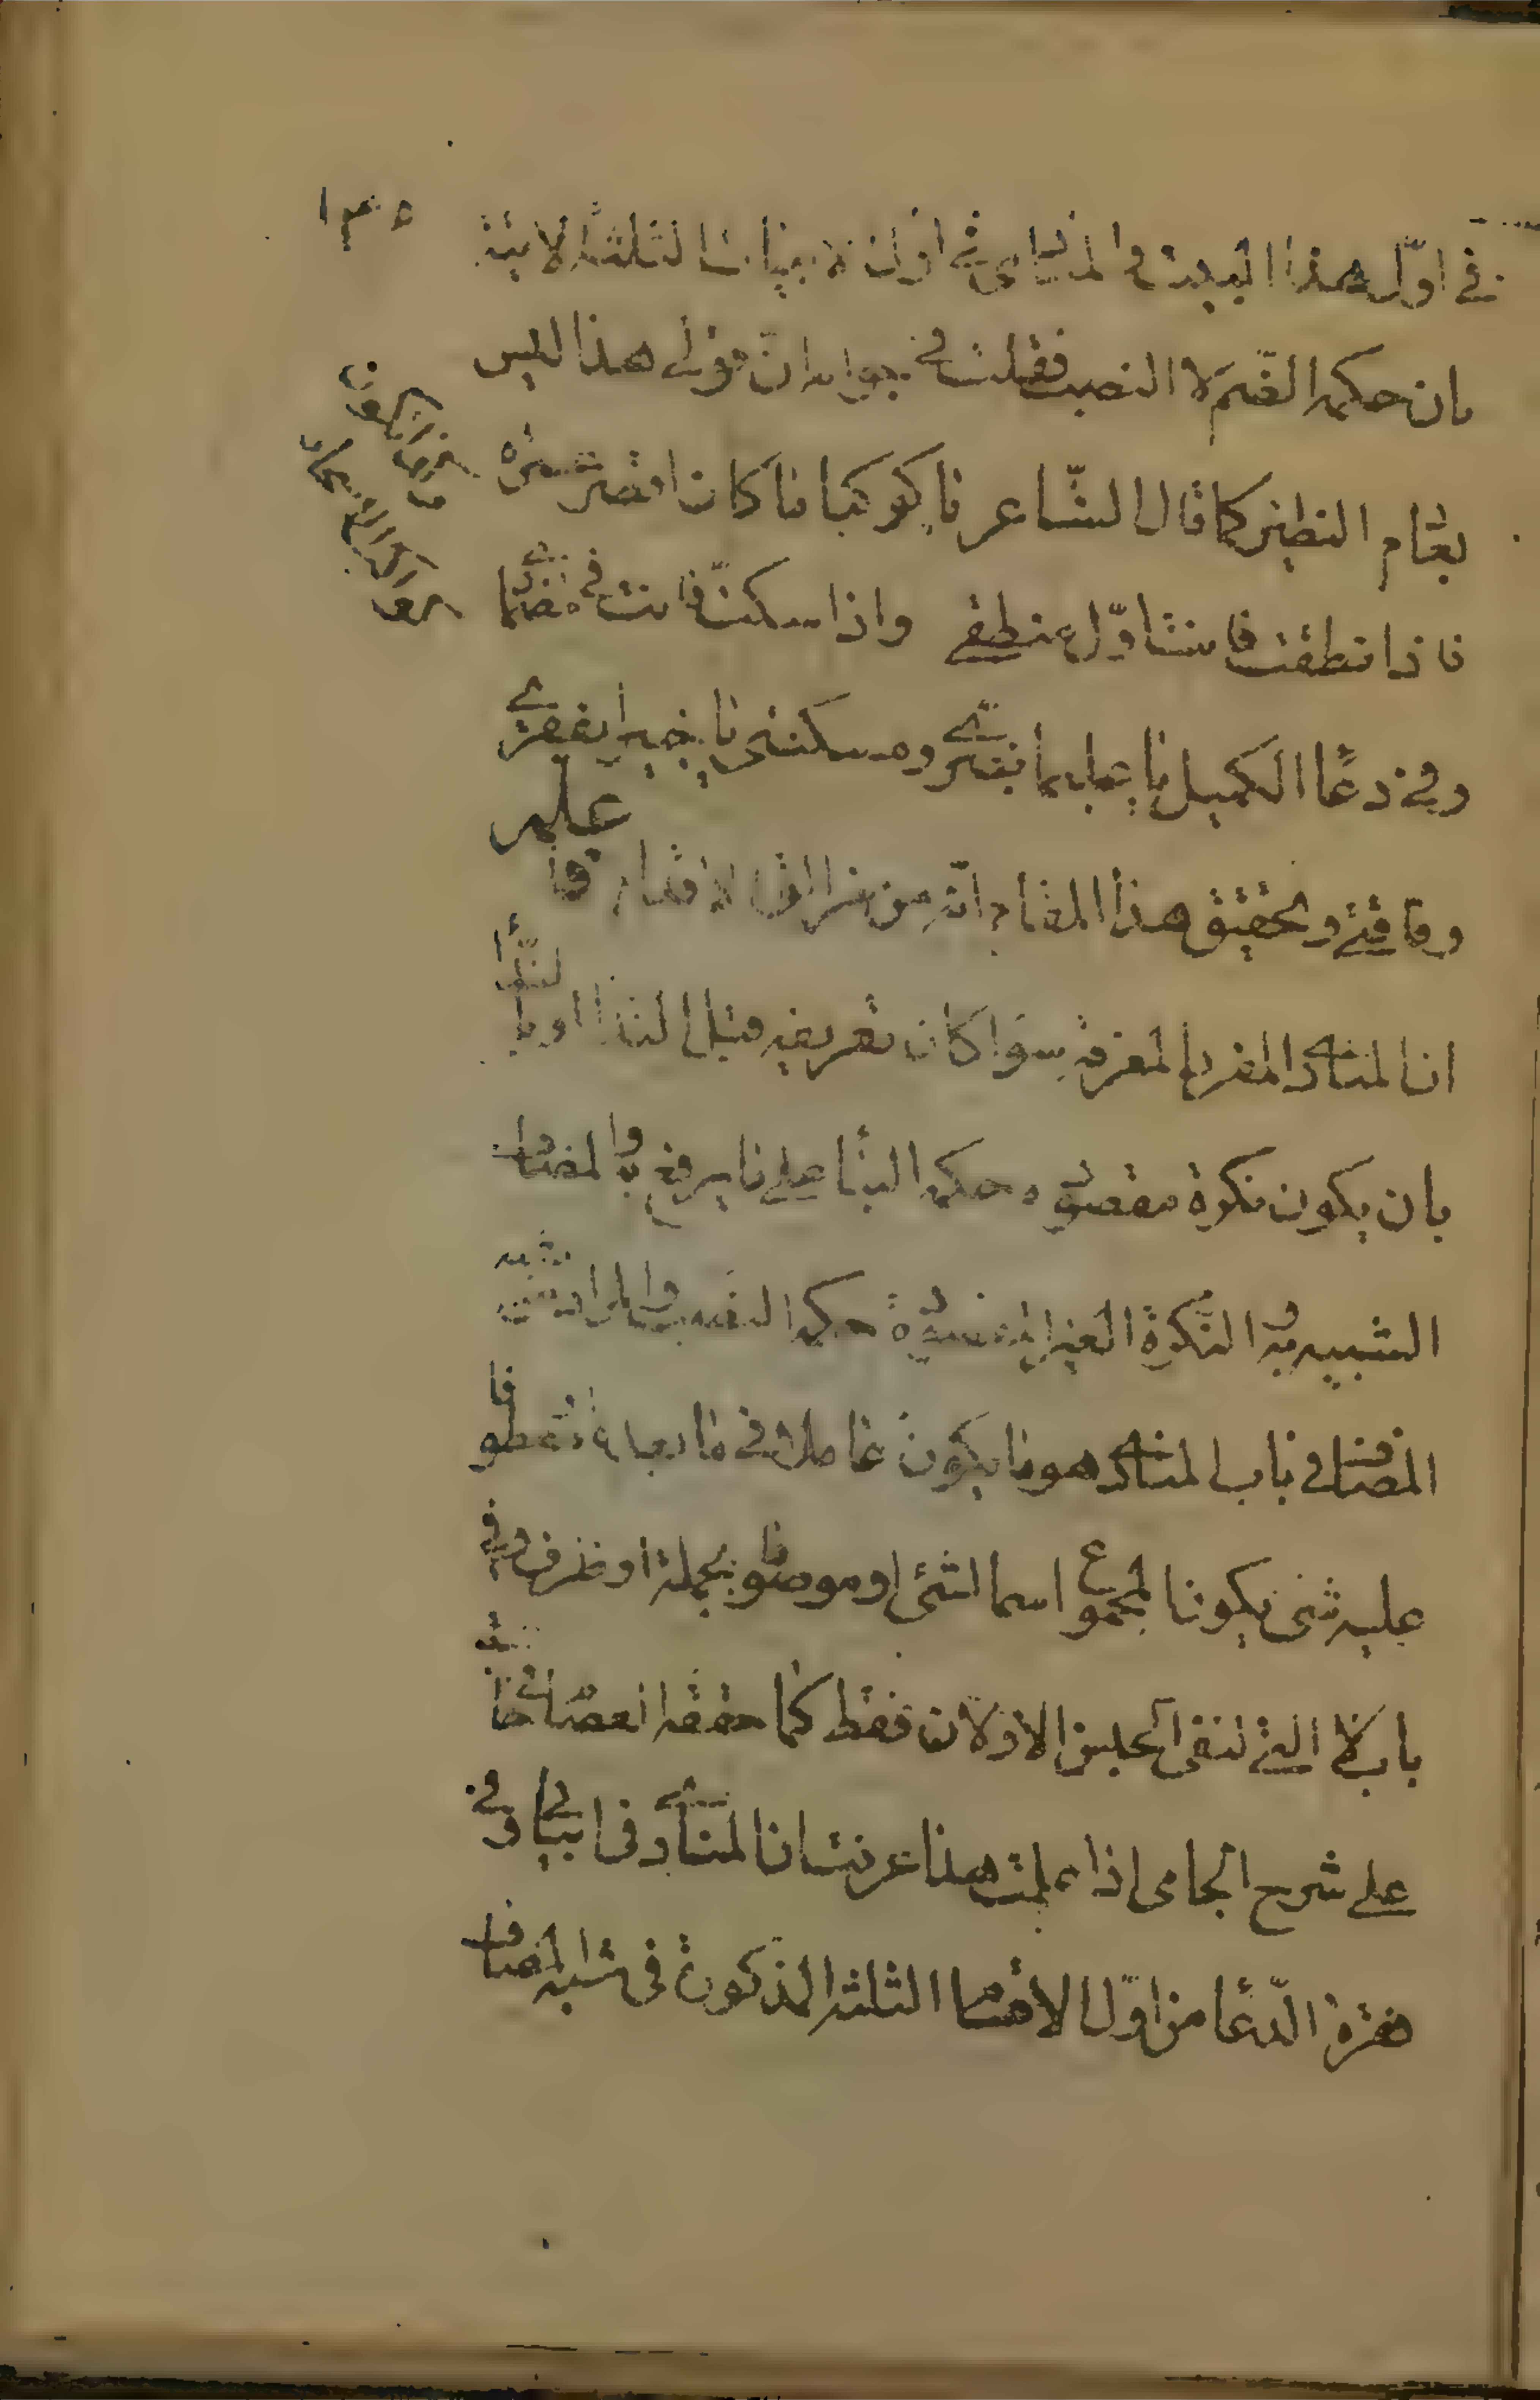 ١٣٥
في اوّل هذا البيت و المنادى في اول الابيات الثلثة الاتية
بان حكمه الضّم لا النصب فقلت في جوابه انّ قوله هذا ليس
بقام النظير كما قال الشاعر يا كوكبا ما كان اقصر عمره
فاذا نطقت فانت اوّل منطقي واذا سكتّ فانت في مضما
وفي دعا الكميل يا عليما بضرّي ومسكنتي يا خبيرا بفقري
وفاقتي وتحقيق هذا المقام انّه من مزال الاقدام فاعلم
ان المنادى المفرد المعرفة سوا كان تعريفه قبل الندا او بالندا
بان يكون نكرة مقصوده حكمه البنا على ما يرفع به والمضاف و
الشبيه به و النكرة الغير المقصودة حكمه النصب والمراد بشبيه
المضاف في باب المنادى هو ما يكون عاملا في ما بعده او معطوفا
عليه شئ يكونا لمجموع اسما لشئ او موصوفا بجملة او ظرف وفي
باب لا التي لنفي الجنس الاولان فقط كما حققه العصام في حاشيته
على شرح الجامي اذا علمت هذا عرفت ان المنادى في ابياتي وفي
فقرة الدّعا من اوّل الاقسام الثلثه المذكورة في شبه المضاف